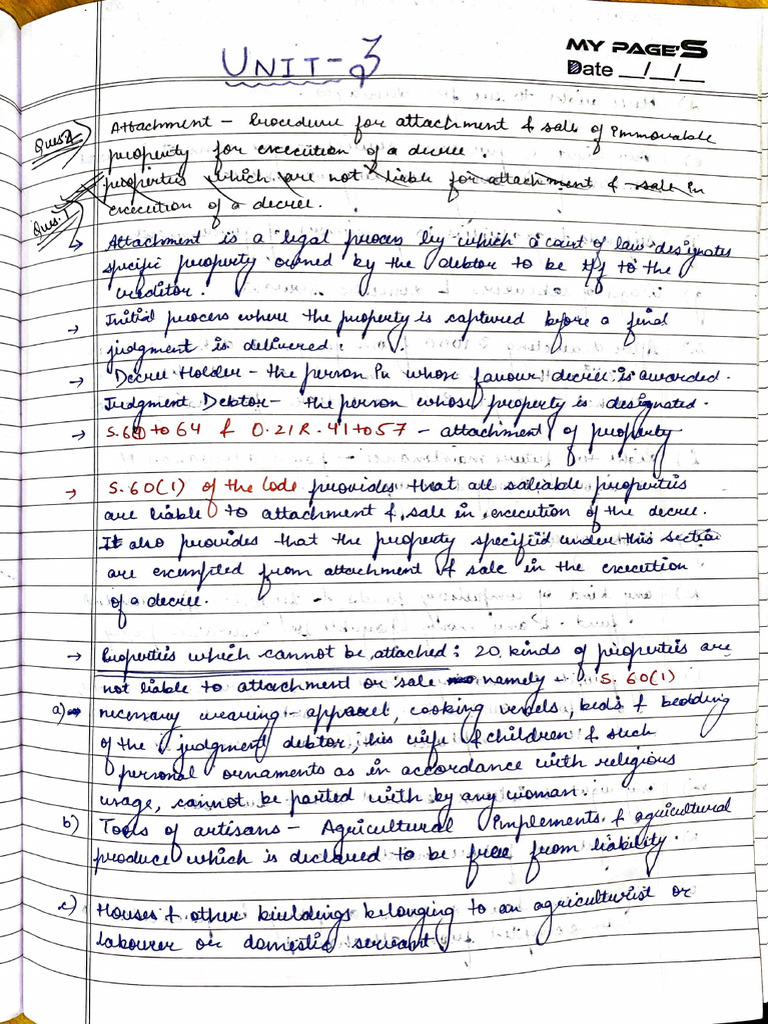 UNIT-3
MY PAGE'S
Date __/__/__
Ques 2
Attachment - Procedure for attachment & sale of immovable
property for execution of a decree.
properties which are not liable for attachment & sale in
Ques. 1
execution of a decree.
→ Attachment is a legal process by which a court of law designates
specific property owned by the debtor to be t/f to the
creditor.
→ Initial process where the property is captured before a final
judgment is delivered.
→ Decree Holder - the person in whose favour decree is awarded.
Judgment Debtor - the person whose property is designated.
→ S.60 to 64 & O.21 R.41 to 57 - attachment of property
→ S.60(1) of the Code provides that all saleable properties
are liable to attachment & sale in execution of the decree.
It also provides that the property specified under this section
are exempted from attachment & sale in the execution
of a decree.
→ Properties which cannot be attached : 20 kinds of properties are
not liable to attachment or sale namely - S. 60(1)
a) necessary wearing - apparel, cooking vessels, beds & bedding
of the judgment debtor, his wife & children & such
personal ornaments as in accordance with religious
usage, cannot be parted with by any woman.
b) Tools of artisans - Agricultural Implements & agricultural
produce which is declared to be free from liability.
c) Houses & other buildings belonging to an agriculturist or
labourer or domestic servant